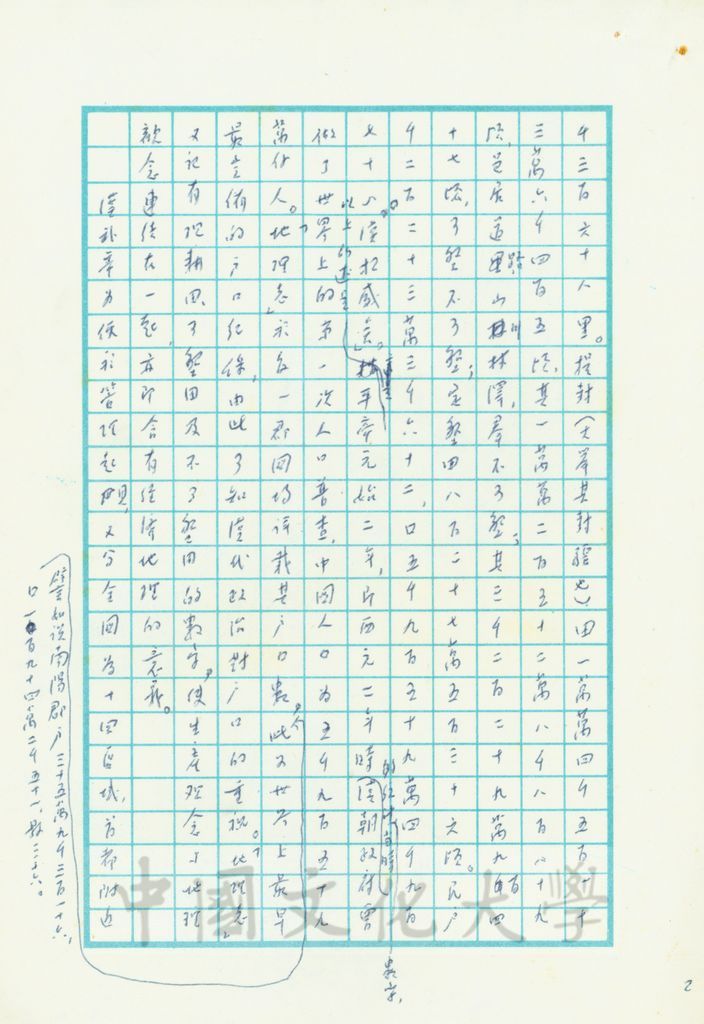 千三百六十八里。提封(大舉其封疆也)田一萬萬四千五百一十
三萬六千四百五頃,其一萬萬二百五十二萬八千八百八十九
頃,邑居道路山川林澤,羣不可墾;其三千二百二十九萬九百四
十七頃,可墾不可墾;定墾田八百二十七萬五百三十六頃。民戶
千二百二十三萬三千六十二,口五千九百五十九萬四千九百
七十八。漢極盛矣。」以上的述是平帝元始二年,即西元二年時的紀錄當時漢朝政府曾
做了世界上的第一次人口普查,中國人口為五千九百五十九
萬餘人。「地理志」於每一郡國均詳載其戶口數,此又世界上最早
最完備的戶口紀錄,由此可知漢代政治對戶口的重視。「地理志」
又記有現耕田、可墾田及不可墾田的數字,使生產觀念與地理
觀念連結在一起,亦即含有經濟地理的意義。
漢朝帝為便於管理起見,又分全國為十四區域,首都附近
(譬如說南陽郡戶三十五萬九千三百一十六,
口一百九十四萬二千五十一,縣三十六。
數字,
2
中國文化大學